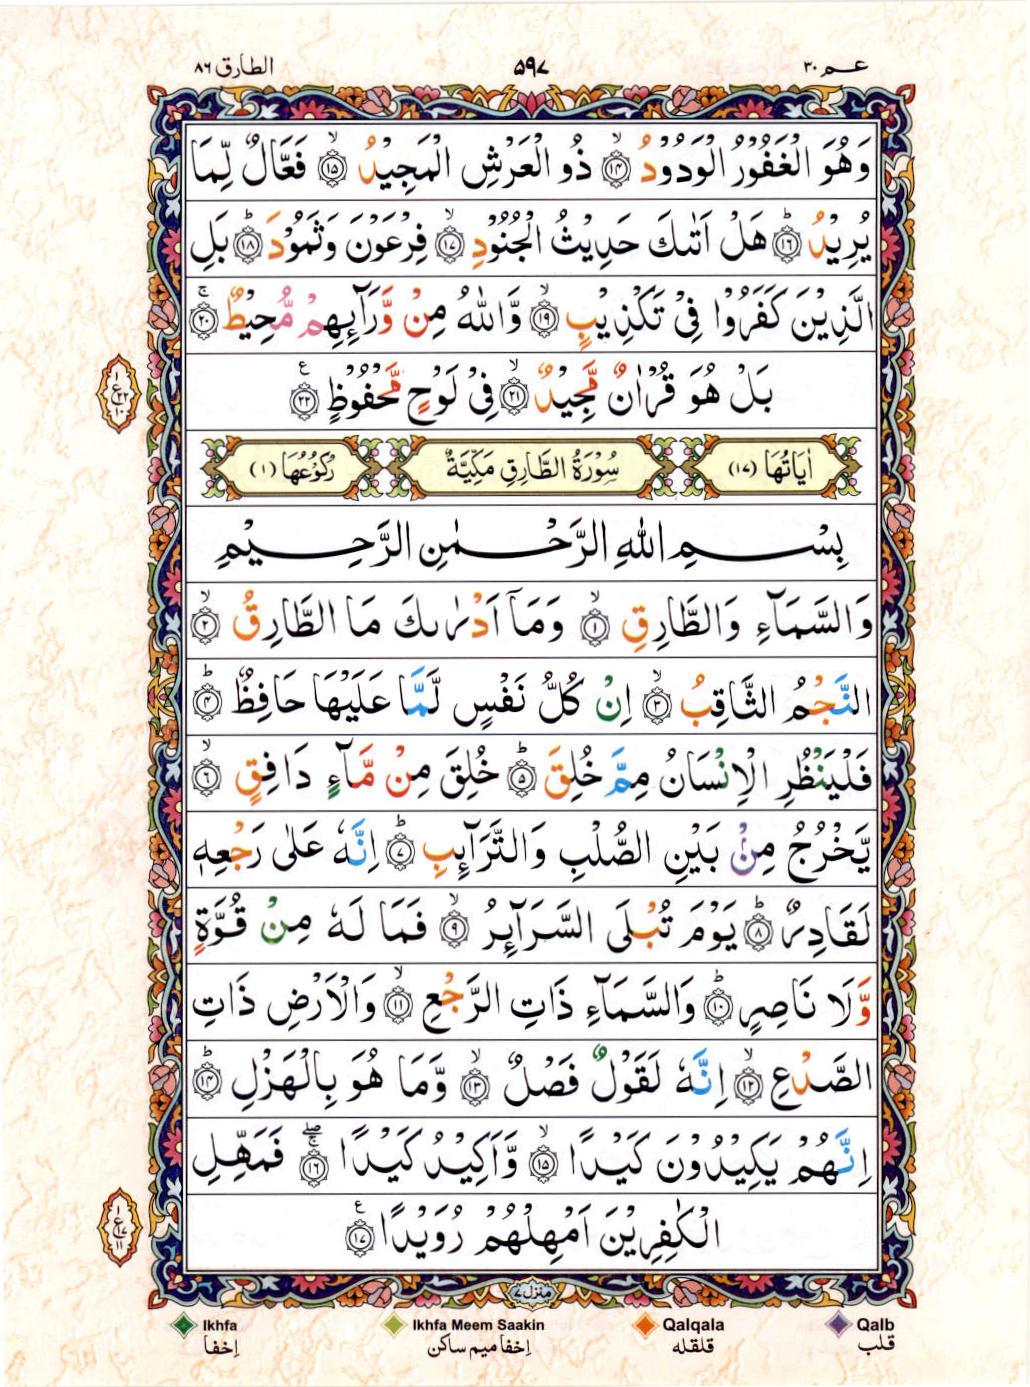 عـم ٣٠
٥٩٧
الطارق ٨٦
وَهُوَ الْغَفُوْرُ الْوَدُوْدُ ۙ﴿۱۴﴾ ذُو الْعَرْشِ الْمَجِيْدُ ۙ﴿۱۵﴾ فَعَّالٌ لِّمَا
يُرِيْدُ ؕ﴿۱۶﴾ هَلْ اَتٰىكَ حَدِيْثُ الْجُنُوْدِ ۙ﴿۱۷﴾ فِرْعَوْنَ وَثَمُوْدَ ؕ﴿۱۸﴾ بَلِ
الَّذِيْنَ كَفَرُوْا فِىْ تَكْذِيْبٍ ۙ﴿۱۹﴾ وَّاللّٰهُ مِنْ وَّرَآئِهِمْ مُّحِيْطٌ ۚ﴿۲۰﴾
بَلْ هُوَ قُرْاٰنٌ مَّجِيْدٌ ۙ﴿۲۱﴾ فِىْ لَوْحٍ مَّحْفُوْظٍ ﴿۲۲﴾ ع
اٰيَاتُهَا (١٧)
سُوْرَةُ الطَّارِقِ مَكِّيَّةٌ
رُكُوْعُهَا (١)
بِسْمِ اللّٰهِ الرَّحْمٰنِ الرَّحِيْمِ
وَالسَّمَآءِ وَالطَّارِقِ ۙ﴿۱﴾ وَمَاۤ اَدْرٰىكَ مَا الطَّارِقُ ۙ﴿۲﴾
النَّجْمُ الثَّاقِبُ ۙ﴿۳﴾ اِنْ كُلُّ نَفْسٍ لَّمَّا عَلَيْهَا حَافِظٌ ؕ﴿۴﴾
فَلْيَنْظُرِ الْاِنْسَانُ مِمَّ خُلِقَ ؕ﴿۵﴾ خُلِقَ مِنْ مَّآءٍ دَافِقٍ ۙ﴿۶﴾
يَّخْرُجُ مِنْۢ بَيْنِ الصُّلْبِ وَالتَّرَآئِبِ ؕ﴿۷﴾ اِنَّهٗ عَلٰى رَجْعِهٖ
لَقَادِرٌ ؕ﴿۸﴾ يَوْمَ تُبْلَى السَّرَآئِرُ ۙ﴿۹﴾ فَمَا لَهٗ مِنْ قُوَّةٍ
وَّلَا نَاصِرٍ ؕ﴿۱۰﴾ وَالسَّمَآءِ ذَاتِ الرَّجْعِ ۙ﴿۱۱﴾ وَالْاَرْضِ ذَاتِ
الصَّدْعِ ۙ﴿۱۲﴾ اِنَّهٗ لَقَوْلٌ فَصْلٌ ۙ﴿۱۳﴾ وَّمَا هُوَ بِالْهَزْلِ ؕ﴿۱۴﴾
اِنَّهُمْ يَكِيْدُوْنَ كَيْدًا ۙ﴿۱۵﴾ وَّاَكِيْدُ كَيْدًا ۚۖ﴿۱۶﴾ فَمَهِّلِ
الْكٰفِرِيْنَ اَمْهِلْهُمْ رُوَيْدًا ﴿۱۷﴾ ع
منزل ٧
Ikhfa
Ikhfa Meem Saakin
Qalqala
Qalb
إخفا
إخفا ميم ساكن
قلقله
قلب